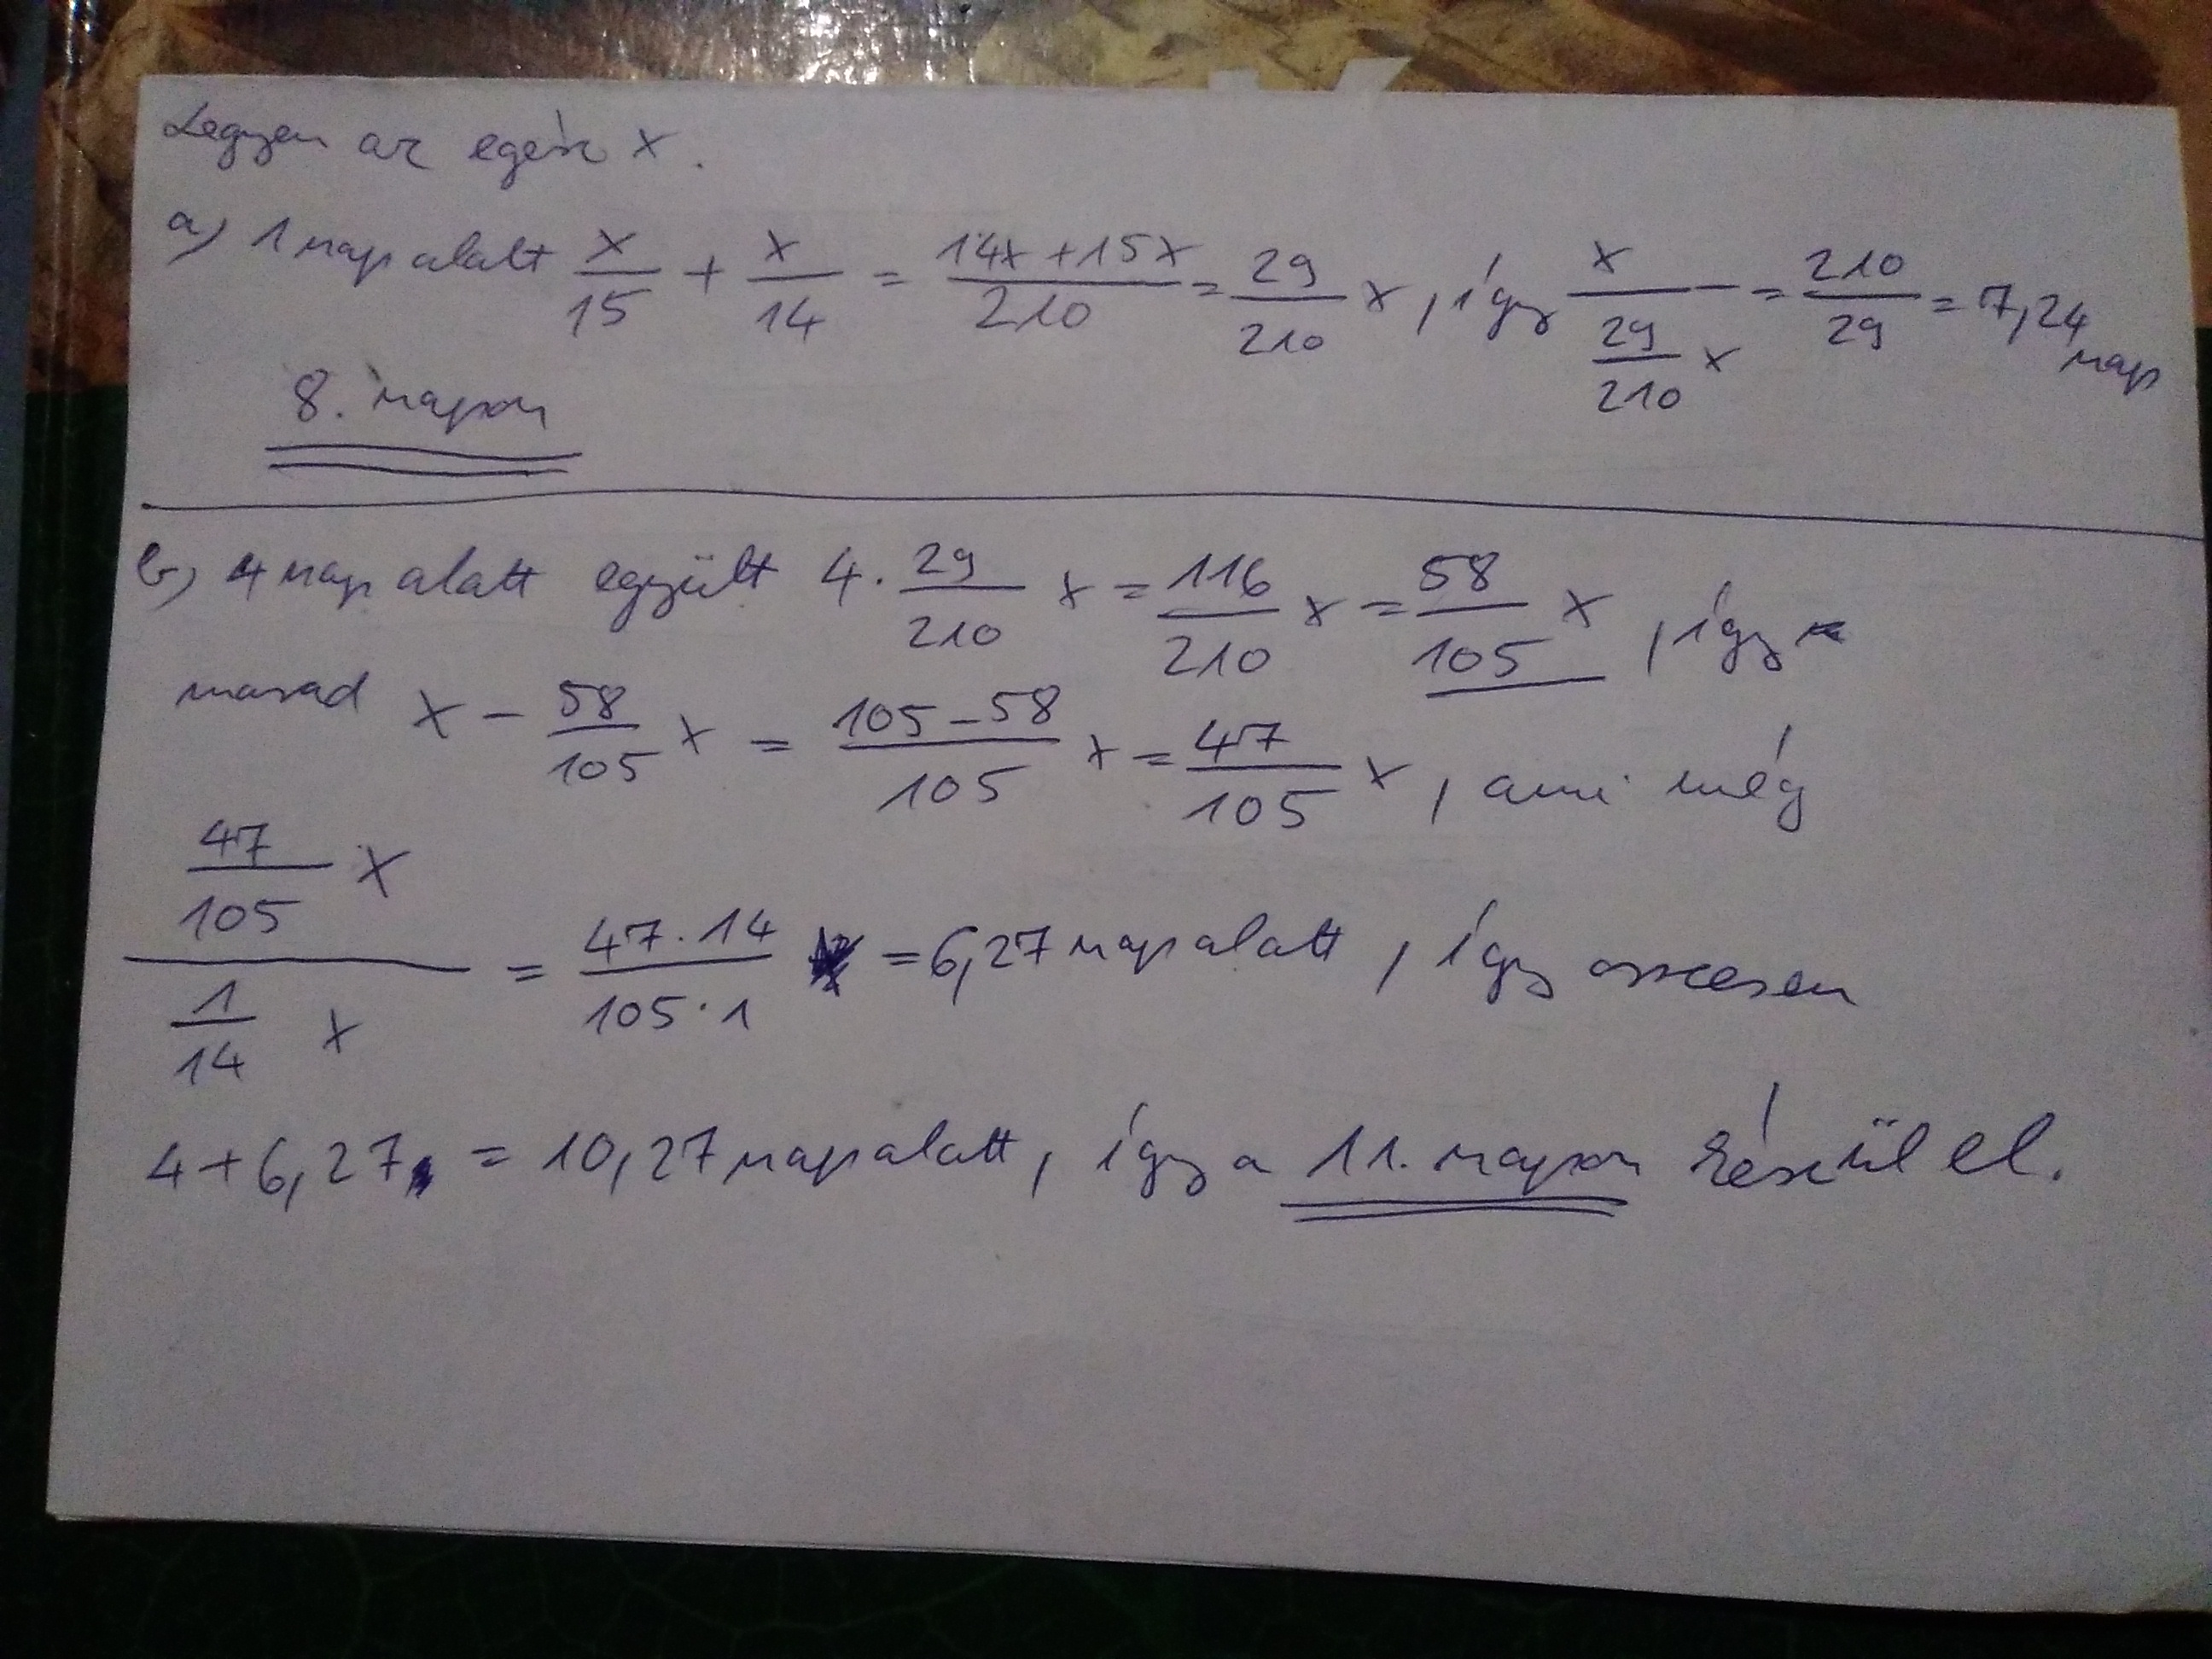 Legyen az egész x.
a) 1 nap alatt x/15 + x/14 = (14x+15x)/210 = 29/210 x, így x/(29/210 x) = 210/29 = 7,24 nap
8. napon
b) 4 nap alatt együtt 4 · 29/210 x = 116/210 x = 58/105 x, így
marad x - 58/105 x = (105-58)/105 x = 47/105 x, ami még
(47/105 x)/(1/14 x) = (47·14)/(105·1) = 6,27 nap alatt, így összesen
4+6,27 = 10,27 nap alatt, így a 11. napon készül el.